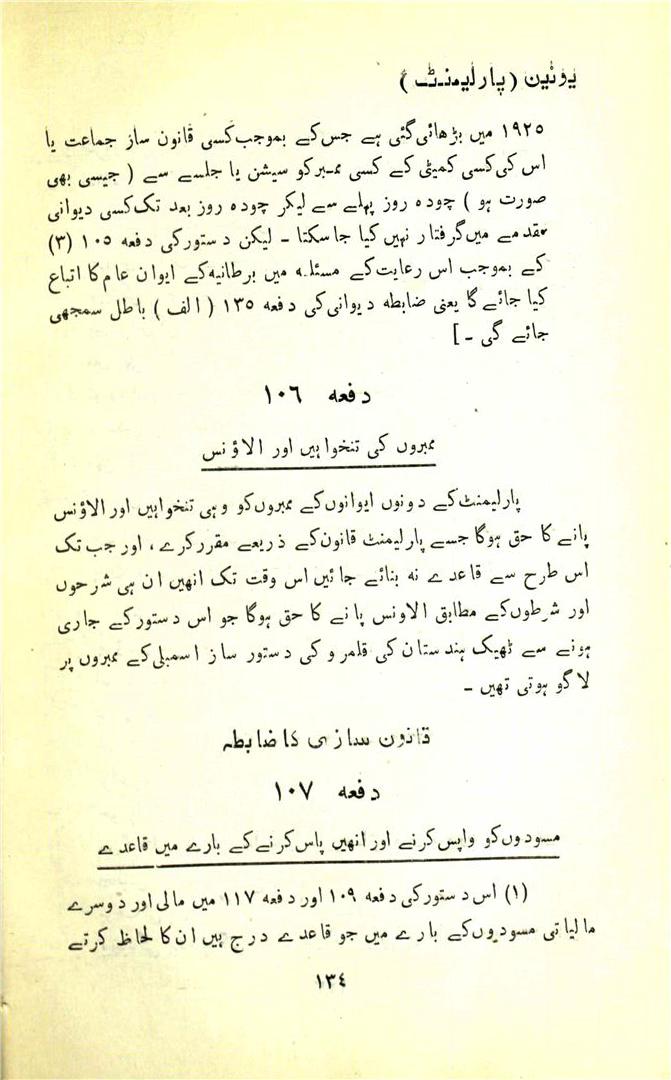 یونین (پارلیمنٹ)
۱۹۲۵ میں بڑھائی گئی ہے جس کے بموجب کسی قانون ساز جماعت یا
اس کی کسی کمیٹی کے کسی ممبر کو سیشن یا جلسے سے ( جیسی بھی
صورت ہو ) چودہ روز پہلے سے لیکر چودہ روز بعد تک کسی دیوانی
مقدمے میں گرفتار نہیں کیا جاسکتا ۔ لیکن دستور کی دفعہ ۱۰۵ (۳)
کے بموجب اس رعایت کے مسئلہ میں برطانیہ کے ایوان عام کا اتباع
کیا جائے گا یعنی ضابطہ دیوانی کی دفعہ ۱۳۵ (الف) باطل سمجھی
جائے گی ۔]
دفعہ ۱۰۶
ممبروں کی تنخواہیں اور الاؤنس
پارلیمنٹ کے دونوں ایوانوں کے ممبروں کو وہی تنخواہیں اور الاؤنس
پانے کا حق ہوگا جسے پارلیمنٹ قانون کے ذریعے مقرر کرے، اور جب تک
اس طرح سے قاعدے نہ بنائے جائیں اس وقت تک انھیں ان ہی شرحوں
اور شرطوں کے مطابق الاونس پانے کا حق ہوگا جو اس دستور کے جاری
ہونے سے ٹھیک ہندستان کی قلمرو کی دستور ساز اسمبلی کے ممبروں پر
لاگو ہوتی تھیں ۔
قانون سازی کا ضابطہ
دفعہ ۱۰۷
مسودوں کو واپس کرنے اور انھیں پاس کرنے کے بارے میں قاعدے
(۱) اس دستور کی دفعہ ۱۰۹ اور دفعہ ۱۱۷ میں مالی اور دوسرے
مالیاتی مسودیوں کے بارے میں جو قاعدے درج ہیں ان کا لحاظ کرتے
۱۳٤